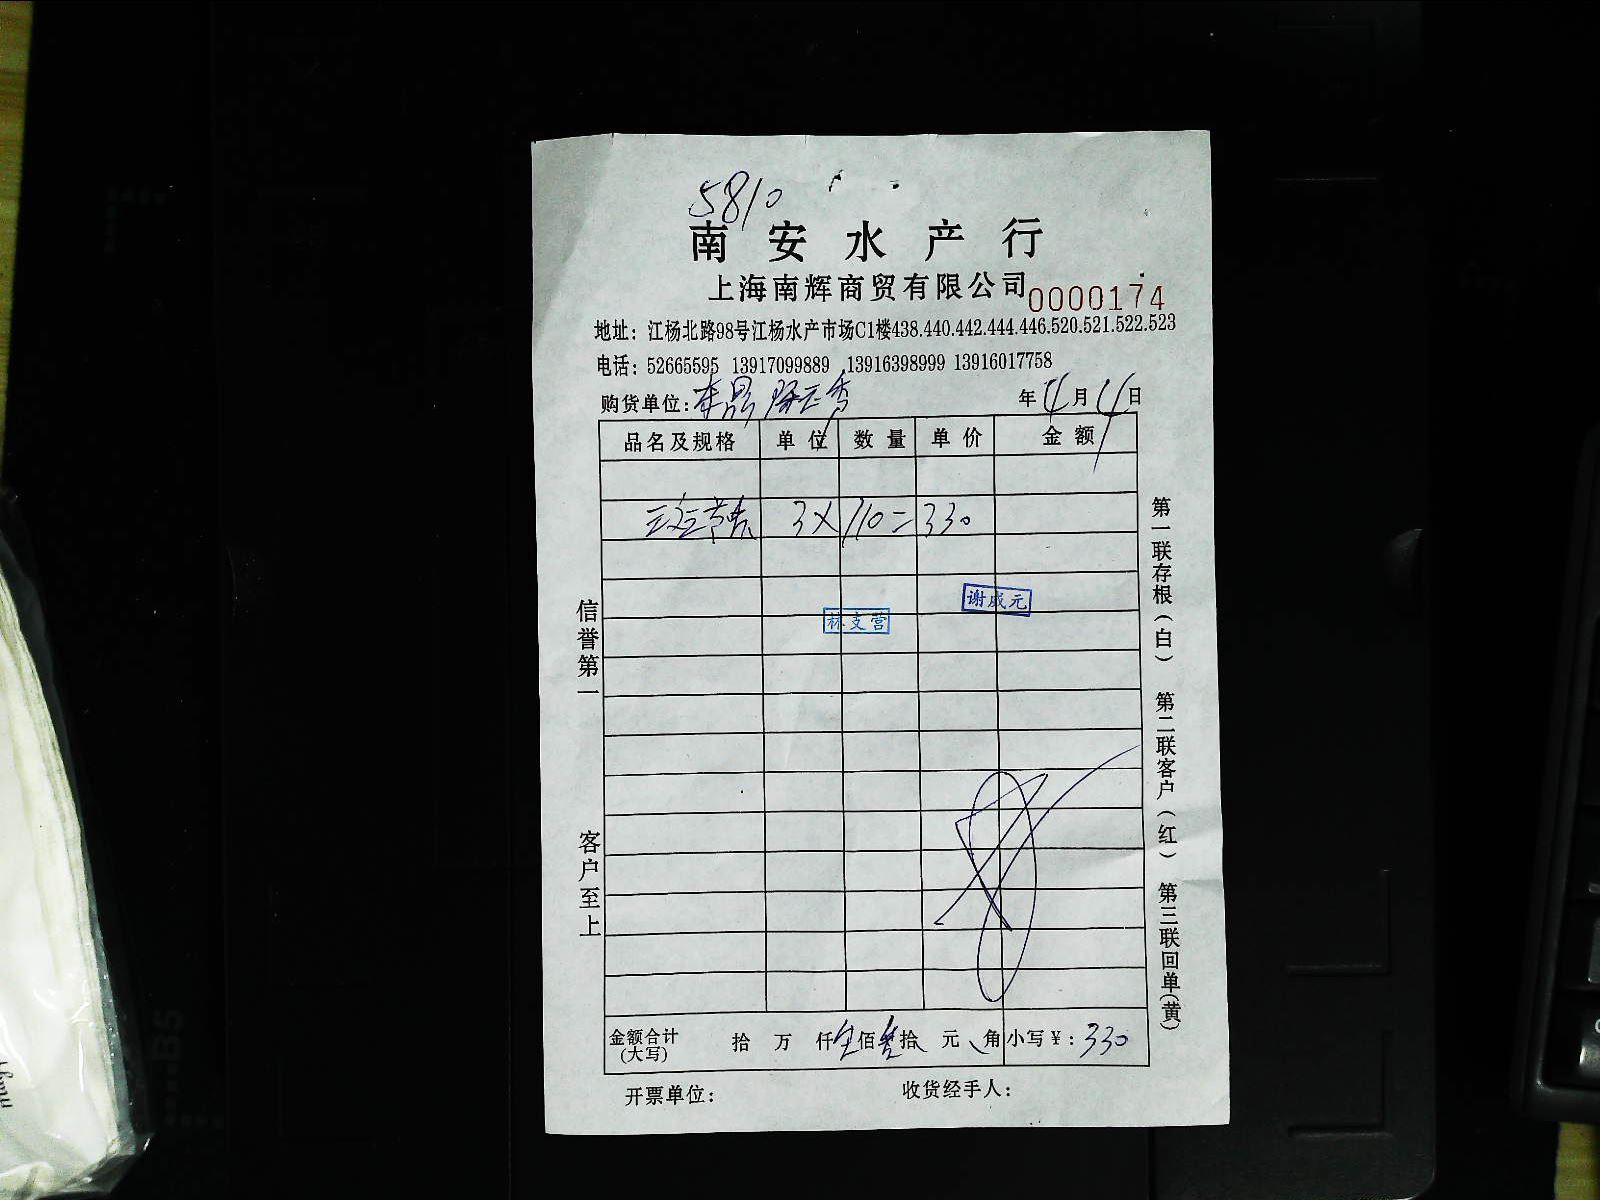 5810
南安水产行
上海南辉商贸有限公司 0000174
地址：江杨北路98号江杨水产市场C1楼438.440.442.444.446.520.521.522.523
电话：52665595 13917099889 13916398999 13916017758
购货单位： 年4月4日
品名及规格 单位 数量 单价 金额
3×110=330
谢成元
林支营
信誉第一
客户至上
第一联存根（白） 第二联客户（红） 第三联回单（黄）
金额合计（大写） 拾 万 仟 佰 拾 元 角 小写￥：330
开票单位： 收货经手人：
B5